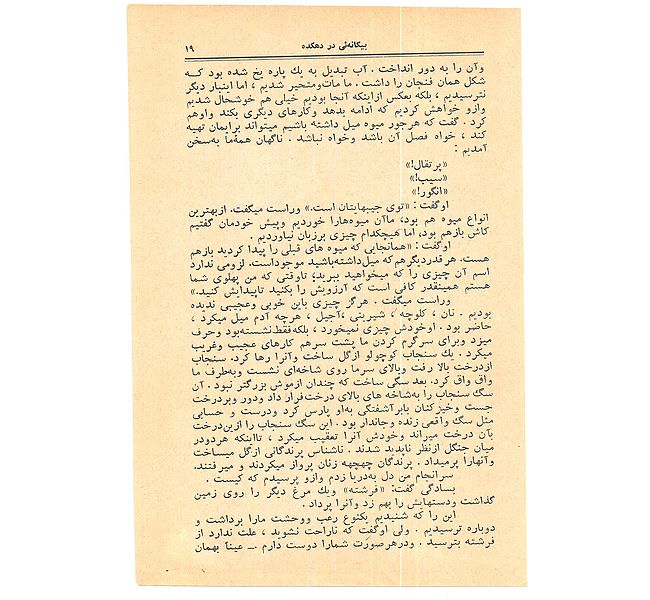 بیگانه‌ئی در دهکده
۱۹
وآن را به دور انداخت . آب تبدیل به یك پاره یخ شده بود کـه
شکل همان فنجان را داشت . ما مات‌ومتحیر شدیم ، اما اینبار دیگر
نترسیدیم ، بلکه بعکس ازاینکه آنجا بودیم خیلی هم خوشحال شدیم
وازو خواهش کردیم که ادامه بدهد وکارهای دیگری بکند واوهم
کرد . گفت که هرجور میوه میل داشته باشیم میتواند برایمان تهیه
کند ، خواه فصل آن باشد وخواه نباشد . ناگهان همهٔ‌ما به‌سخن
آمدیم :
«پرتقال!»
«سیب!»
«انگور!»
اوگفت : «توی جیبهایتان است.» وراست میگفت. ازبهترین
انواع میوه هم بود، ماآن میوه‌هارا خوردیم وپیش خودمان گفتیم
کاش بازهم بود، اما هیچکدام چیزی برزبان نیاوردیم .
اوگفت : «همانجایی که میوه های قبلی را پیدا کردید بازهم
هست. هر قدردیگرهم که میل‌داشته‌باشید موجوداست. لزومی ندارد
اسم آن چیزی را که میخواهید ببرید؛ تاوقتی که من پهلوی شما
هستم همینقدر کافی است که آرزویش را بکنید تاپیدایش کنید.»
وراست میگفت . هرگز چیزی باین خوبی وعجیبی ندیده
بودیم . نان ، کلوچه ، شیرینی ،آجیل ، هرچه آدم میل میکرد ،
حاضر بود . اوخودش چیزی نمیخورد ، بلکه‌فقط‌نشسته‌بود وحرف
میزد وبرای سرگرم کردن ما پشت سرهم کارهای عجیب وغریب
میکرد . یك سنجاب کوچولو ازگل ساخت وآنرا رها کرد. سنجاب
ازدرخت بالا رفت وبالای سرما روی شاخه‌ای نشست وبه‌طرف ما
واق واق کرد. بعد سگی ساخت که چندان ازموش بزرگتر نبود . آن
سگ سنجاب را به‌شاخه های بالای درخت‌فرار داد ودور وبردرخت
جست وخیزکنان بابرآشفتگی به‌او پارس کرد ودرست و حسابی
مثل سگ واقعی زنده وجاندار بود . این سگ سنجاب را ازین‌درخت
بآن درخت میراند وخودش آنرا تعقیب میکرد ، تااینکه هردودر
میان جنگل ازنظر ناپدید شدند . ناشناس پرندگانی ازگل میساخت
وآنهارا پرمیداد . پرندگان چهچهه زنان پرواز میکردند و میرفتند.
سرانجام من دل به‌دریا زدم وازو پرسیدم که کیست .
بسادگی گفت: «فرشته» ویك مرغ دیگر را روی زمین
گذاشت ودستهایش را بهم زد وآنرا پرداد .
این را که شنیدیم یکنوع رعب ووحشت مارا برداشت و
دوباره ترسیدیم . ولی اوگفت که ناراحت نشوید ، علت ندارد از
فرشته بترسید . ودرهرصورت شمارا دوست دارم .ـ عیناً بهمان